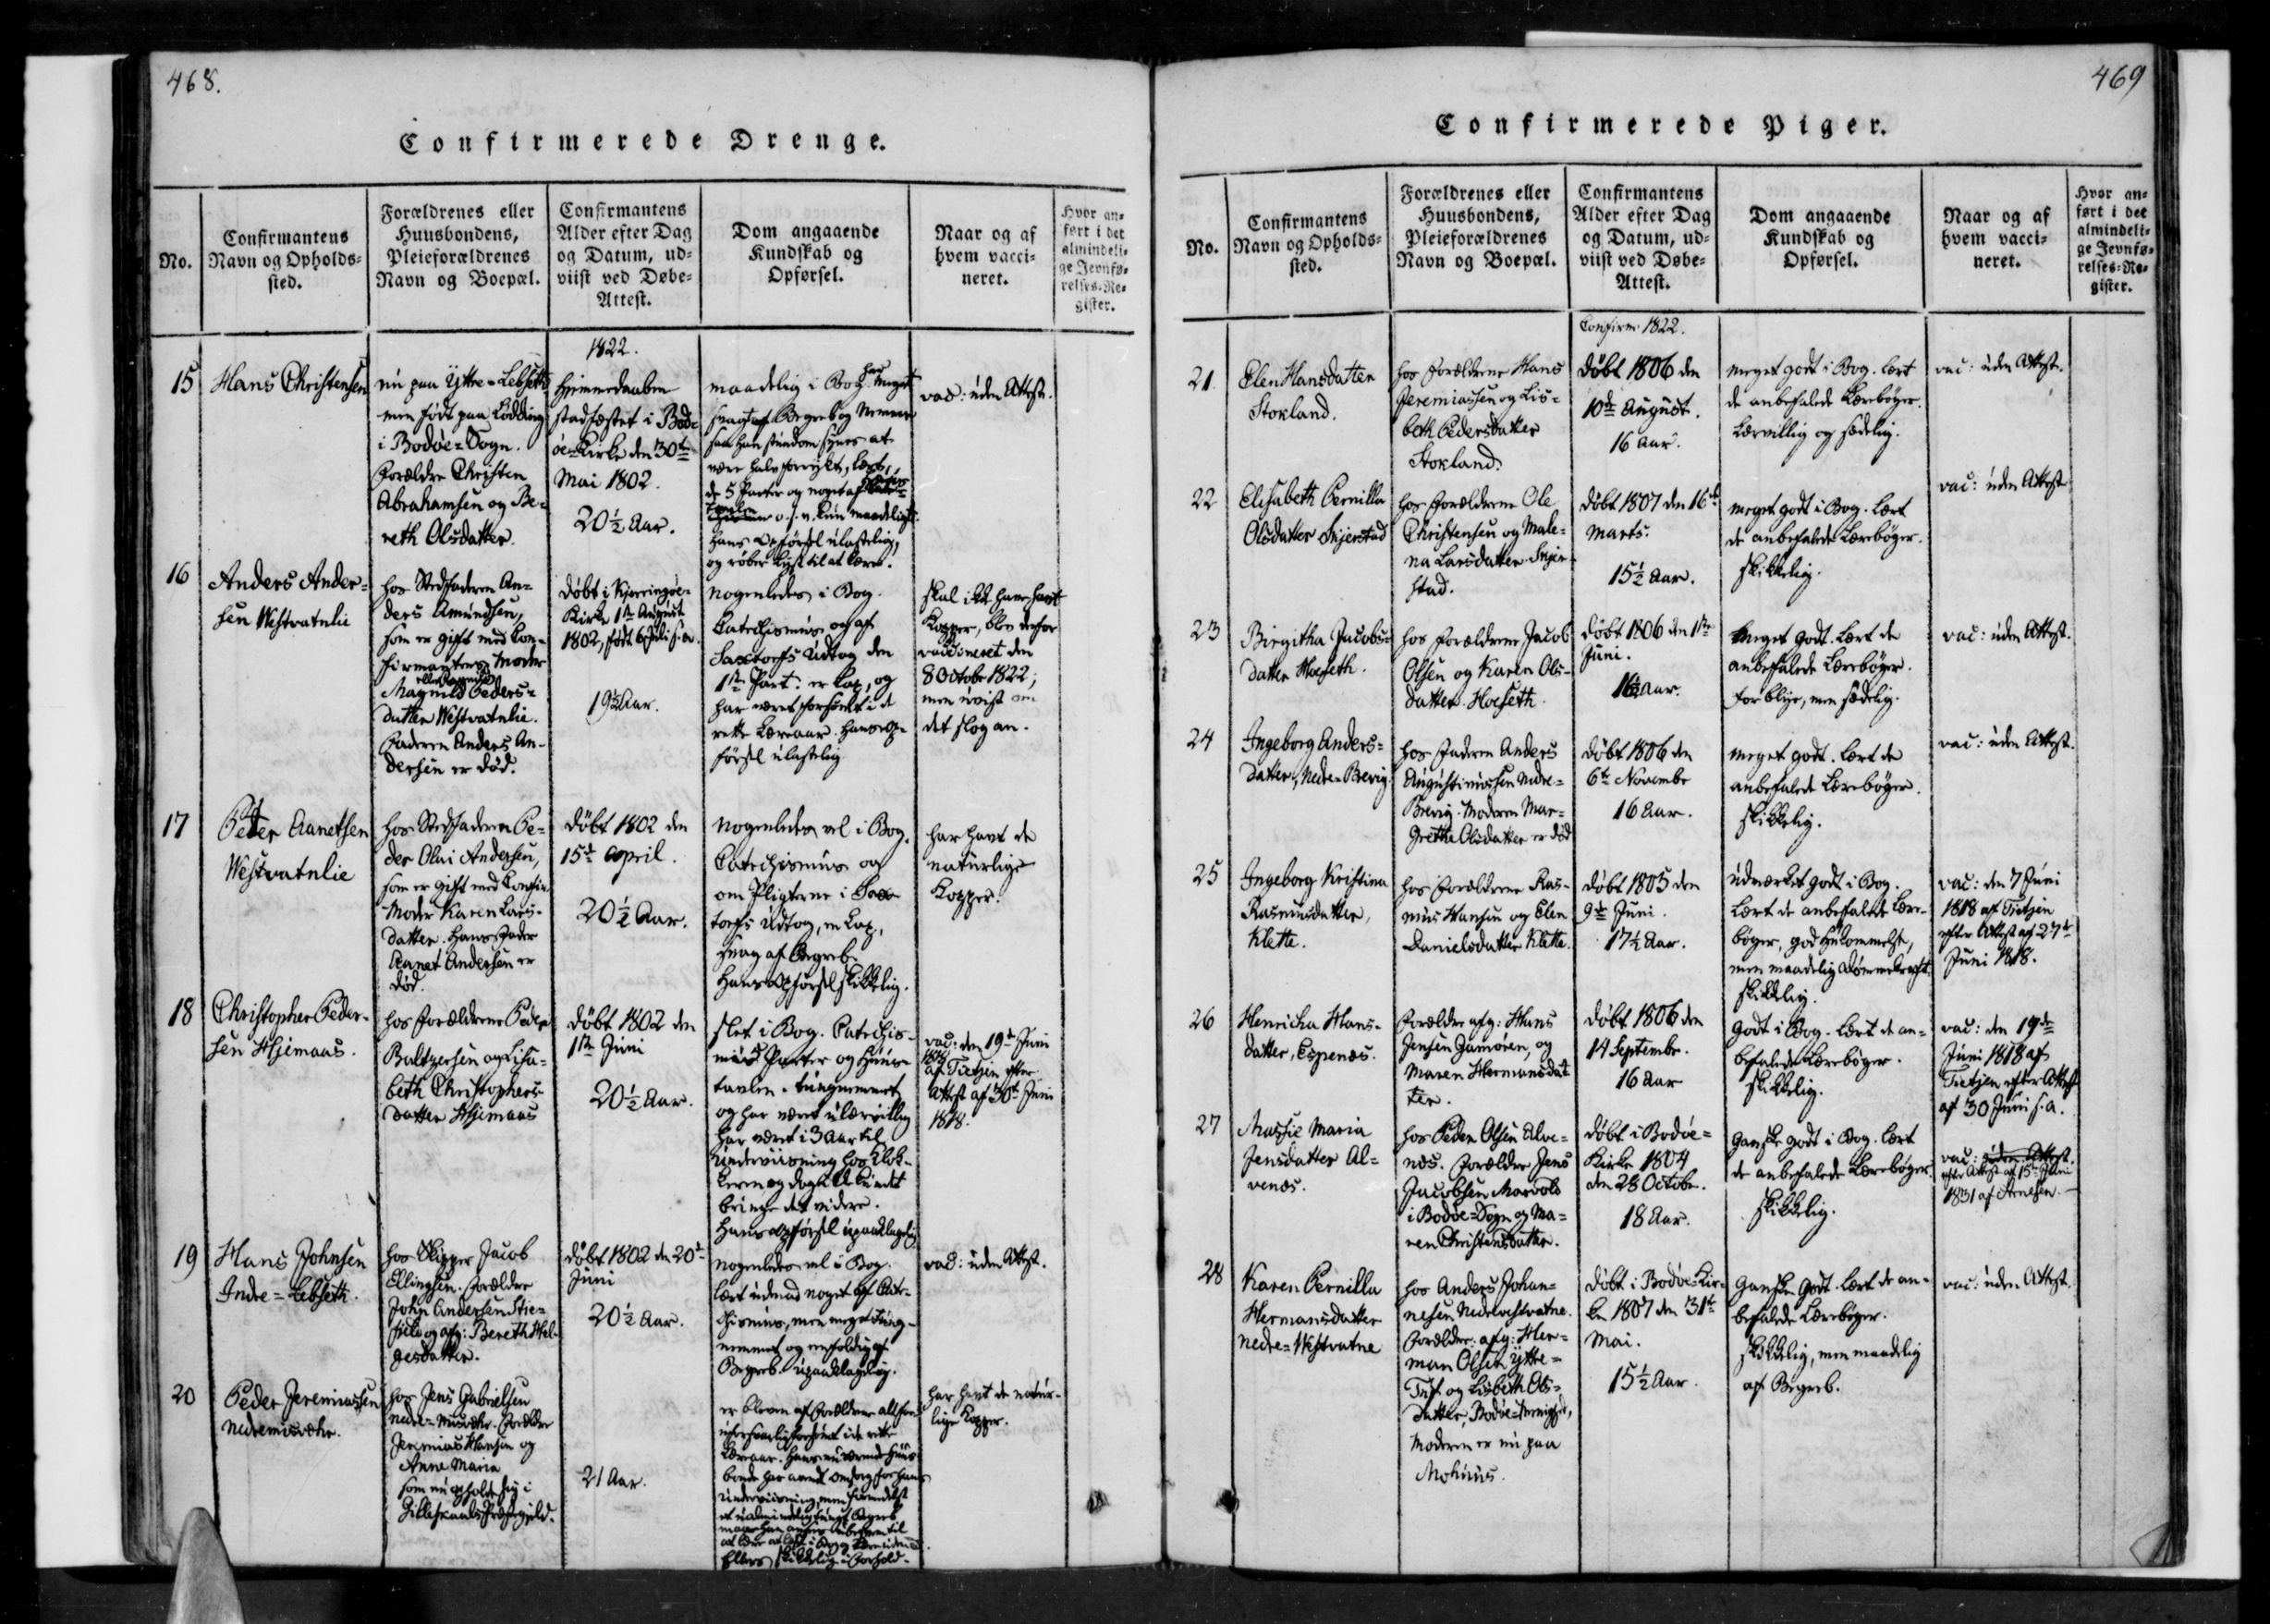 468.
Confirmerede Drenge.
No.
Confirmantens
Navn og Opholds-
sted.
Forældrenes eller
Huusbondens,
Pleieforældrenes
Navn og Boepæl.
Confirmantens
Alder efter Dag
og Datum, ud-
viist ved Døbe-
Attest.
Dom angaaende
Kundskab og
Opførsel.
Naar og af
hvem vacci-
neret.
Hvor an-
ført i det
almindeli-
ge Jevnfø-
relses-Re-
gister.
1822.
15
Hans Christensen
nu paa Ÿttre=Lebseth
men født paa Lødding
i Bodøe=Sogn.
Forældre Christen
Abrahamsen og Be-
reth Olsdatter.
Hjemmedaaben
stadfæstet i Bod-
öe=Kirke den 30te
Mai 1802.
20½ Aar.
maadelig i Bog. har meget
svagt af Begreb og Nemme
saa han stundom synes at
være halv forrykt, lært
de 5 Parter og noget af
o. s. v. kun maadeligt.
Hans Opførsel ulastelig,
og røber Lyst til at lære.
vac: uden Attest.
16
Anders Ander-
sen Westvatnlie
hos Stedfaderen An-
ders Amundsen,
som er gift med Con-
firmantens Moder
Magnild Peders-
datter Westvatnlie.
Faderen Anders An-
dersen er død.
døbt i Kjerringøe-
Kirke 1ste August
1802, født 6 Juli s. a.
19½ Aar.
nogenledes i Bog.
Catechismus og af
Saxtorfs Udtog den
1ste Part. er lap, og
har været forsømt i de
rette Læreaar. Hans Op-
førsel ulastelig
skal ikke have havt
Kopper, blev derfor
vaccineret den
8 Octobr 1822;
men uvist om
det slog an.
17
Peder Aanetsen
Westvatnlie
hos Stedfaderen Pe-
der Olai Andersen,
som er gift med Confir.
Moder Karen Lars-
datter. Hans Fader
Aanet Andersen er
død.
døbt 1802 den
15de April.
20½ Aar.
nogenledes vel i Bog.
Catechismus og
om Pligterne i Sax-
torfs Udtog, er lap,
svag af Begreb.
Hans Opførsel skikkelig.
har havt de
naturlige
Kopper.
18
Christopher Peder-
sen Hjemaas.
hos Forældrene Peder
Baltzersen og Lisa-
beth Christophers-
datter Hjemaas
døbt 1802 den
1ste Juni
20½ Aar.
slet i Bog. Catechis-
mus Parter og Huus-
tavlen. tungnemmet
og har været ulærvillig
har været i 3 Aar til
Underviisning hos Klok-
keren og dog ikke kundet
bringe det videre.
Hans Opførsel upaaklagelig
vac: den 19de Juni
1818
af Tietjen efter
Attest af 30te Juni
1818.
19
Hans Johnsen
Indre=Lebseth.
hos Skipper Jacob
Ellingsen. Forældre
John Andersen Stie-
og afg: Bereth Hel-
gesdatter.
døbt 1802 den 20de
Juni
20½ Aar.
nogenledes vel i Bog.
lært udenad noget af Cate-
chismus, men meget tung-
nemmet og eenfoldig af
Begreb. upaaklagelig.
vac: uden Attest.
20
Peder Jeremiassen
Nedremisvær.
hos Jens Gabrielsen
Nedre=Misvær. Forældre
Jeremias Hansen og
Anne Maria
som nu opholde sig i
Gilleskaals Præstegjeld.
21 Aar.
er bleven af Forældrene alt for
uforsvarlig forsømt i de rette
Læreaar. Hans nuværende Huus-
bonde har havt Omsorg for hans
Underviisning, men formedelst
et ualmindelig tungt Begreb
maae han ansees ubekvem til
at lære at læse i Bog og
Ellers skikkelig i Forhold.
har havt de natur-
lige Kopper.
469
Confirmerede Piger.
No.
Confirmantens
Navn og Opholds-
sted.
Forældrenes eller
Huusbondens,
Pleieforældrenes
Navn og Boepæl.
Confirmantens
Alder efter Dag
og Datum, ud-
viist ved Døbe-
Attest.
Dom angaaende
Kundskab og
Opførsel.
Naar og af
hvem vacci-
neret.
Hvor an-
ført i det
almindeli-
ge Jevnfø-
relses-Re-
gister.
Confirm. 1822.
21.
Elen Hansdatter
Stokland.
hos Forældrene Hans
Jeremiassen og Lis-
beth Pedersdatter
Stokland.
døbt 1806 den
10de August.
16 Aar.
meget godt i Bog. lært
de anbefalede Lærebøger.
Lærvillig og sædelig.
vac: uden Attest.
22
Elisabeth Pernilla
Olsdatter Skjerstad
hos Forældrene Ole
Christensen og Male-
na Larsdatter Skjer-
stad.
døbt 1807 den 16de
Marts.
15½ Aar.
meget godt i Bog. lært
de anbefalede Lærebøger.
skikkelig.
vac: uden Attest
23
Birgitha Jacobs-
datter Hoeseth.
hos Forældrene Jacob
Olsen og Karen Ols-
datter Hoeseth.
døbt 1806 den 1ste
Juni.
16½ Aar.
Meget godt. lært de
anbefalede Lærebøger.
for blye, men sædelig.
vac: uden Attest.
24
Ingeborg Anders-
datter, Nedre=Brevig.
hos Faderen Anders
Augustinussen Nedre-
Brevig. Moderen Mar-
grethe Olsdatter er død
døbt 1806 den
6te Novembr
16 Aar.
meget godt. lært de
anbefalede Lærebøger.
skikkelig.
vac: uden Attest.
25
Ingeborg Kristina
Rasmusdatter,
Klette.
hos Forældrene Ras-
mus Hansen og Elen
Danielsdatter Klette.
døbt 1805 den
9de Juni.
17½ Aar.
udmærket godt i Bog.
lært de anbefalede Lære-
bøger, god Hukommelse,
men maadelig Dømmekraft.
skikkelig.
vac: den 7 Juni
1818 af Tietjen
efter Attest af 27de
Juni 1818.
26
Henricha Hans-
datter, Espenæs.
Forældre afg: Hans
Jensen Gamøren, og
Maren Hermansdat-
ter.
døbt 1806 den
14 Septembr.
16 Aar
godt i Bog. lært de an-
befalede Lærebøger.
skikkelig.
vac: den 19de
Juni 1818 af
Tietjen efter Attest
af 30 Juni s. a.
27
Massie Maria
Jensdatter Al-
venæs.
hos Peder Olsen Alve-
næs. Forældre Jens
Jacobsen Marvold
i Bodøe=Sogn og Ma-
ren Christensdatter.
døbt i Bodøe=
Kirke 1804
den 28 Octobr.
18 Aar.
Ganske godt i Bog. lært
de anbefalede Lærebøger.
skikkelig.
vac: uden Attest.
efter Attest af 15de Juni
1831 af Arnesen.
28
Karen Pernilla
Hermansdatter
Nedre=Westvatne
hos Anders Johan-
nesen Nedrevestvatne.
Forældre: afg: Her-
man Olsen Ÿttre=
og Lisbeth Ols-
datter, Bodøe=
Moderen er nu paa
døbt i Bodøe=Kir-
ke 1807 den 31te
Mai.
15½ Aar.
Ganske godt. lært de an-
befalede Lærebøger.
skikkelig, men maadelig
af Begreb.
vac: uden Attest.